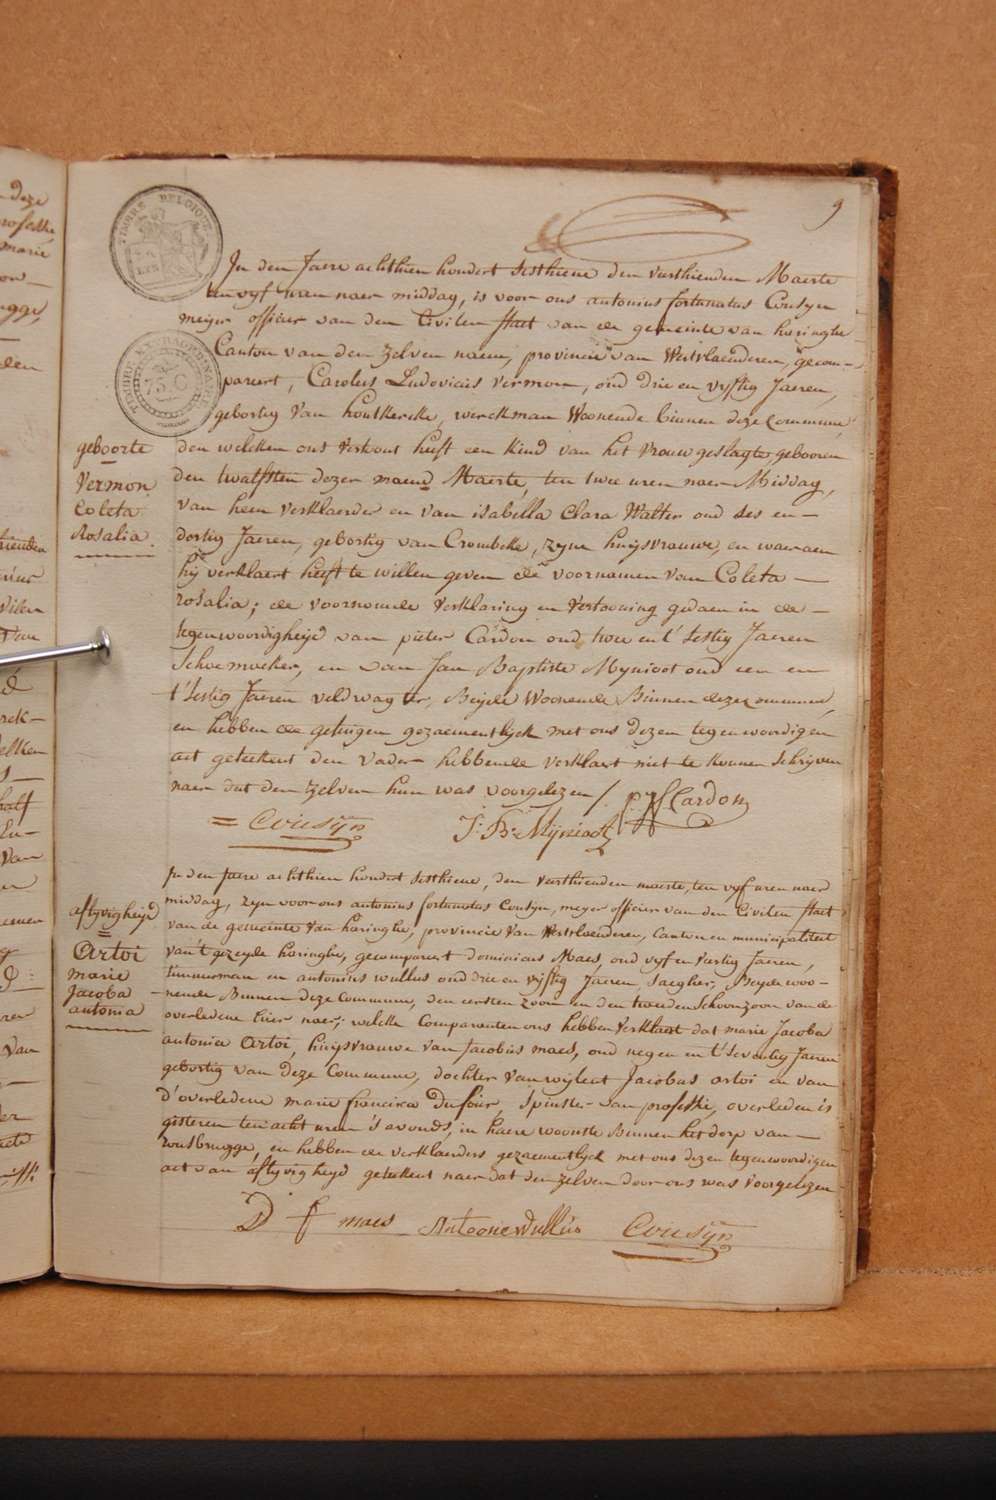 9
TIMBRE BELGIQUE
In den Jaere achthien hondert sesthiene den veerthienden Maerte
ten vyf uren naer middag, is voor ons antonius fortunatus Cousyn
meijer officier van den Civilen staet van de gemeinte van haringhe
Canton van den zelven naem, provincie van Westvlaenderen, gecom-
pareert, Carolus Ludovicus vermon, oud drie en vyftig Jaeren,
gebortig van houtkercke, werckman Woonende binnen deze commune,
den welcken ons vertoont heeft een kind van het vrouw geslagte gebooren
den twalfsten dezer maend Maerte, ten twee uren naer Middag,
van hem verklaerder en van isabella Clara Walter oud ses en-
dertig Jaeren, gebortig van Crombeke, zyne huijsvrauwe, en waeraen
hij verklaert heeft te willen geven de voornamen van Coleta -
rosalia; de voornoemde verklaring en vertooning gedaen in de -
tegenwoordigheijd van pieter Cardon oud twee en t'sestig Jaeren
Schoenmaeker, en van Jan Baptiste Mynioot oud een en
t'sestig Jaeren veldwagter, Beijde Woonende Binnen deze commune,
en hebben de getuigen gezaementlyck met ons dezen tegenwoordigen
act geteekent den vader hebbende verklaert niet te konnen schrijven
naer dat den zelven hun was voorgelezen /. p J Cardon
= Cousÿn J: B: Mÿnioot
geboorte
Vermon
Coleta
Rosalia.
In den Jaere achthien hondert sesthiene, den veerthienden maerte, ten vyf uren naer
middag, zyn voor ons antonius fortunatus Cousyn, meyer officier van den Civilen staet
van de gemeinte van haringhe, provincie van Westvlaenderen, Canton en municipaliteit
van't gezeyde haringhe, gecomparert dominicus Maes, oud vyf en veertig Jaeren,
timmerman en antonius wullus oud drie en vyftig Jaeren, saegher, Beyde woo-
nende Binnen deze Commune, den eersten zoon en den tweeden schoonzoon van de
overledene hier naer; welke Comparanten ons hebben verklaert dat marie Jacoba
antonia Artoi, huijsvrauwe van Jacobus maes, oud negen en t'seventig Jaeren
gebortig van deze Commune, dochter van wylent Jacobus artoi en van
d'overledene marie francisca Dufour, spinster van professie, overleeden is
gisteren ten acht uren 's avonds, in haere woonste Binnen het dorp van -
rousbrugge, en hebben de verklaerders gezaementlyck met ons dezen tegenwoordigen
act van aflyvigheyd geteekent naer dat den zelven door ons was voorgelezen
D f maes Antoone Wullus Cousÿn
aflyvigheyd
=
Artoi
marie
Jacoba
antonia